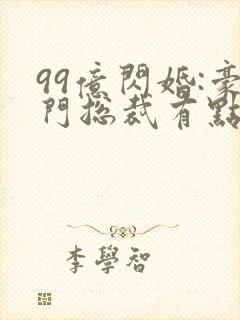 99億閃婚:豪
門総裁有點
李學智